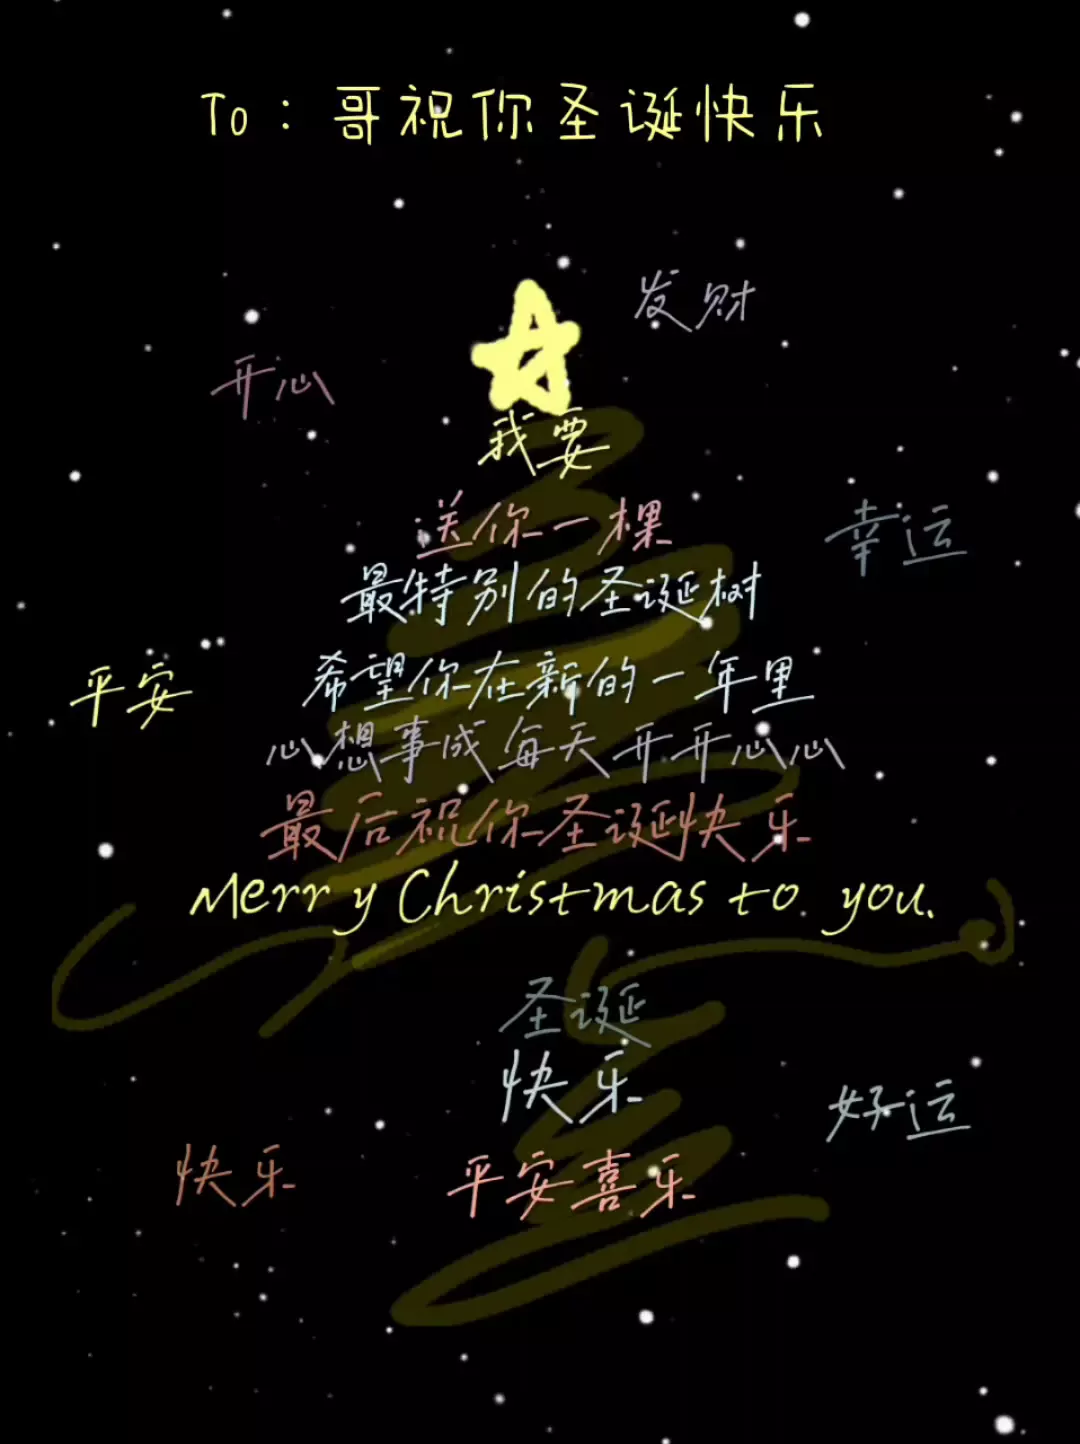 To：哥祝你圣诞快乐
发财
开心
我要
送你一棵
幸运
最特别的圣诞树
希望你在新的一年里
平安
心想事成每天开开心心
最后祝你圣诞快乐
Merry Christmas to you.
圣诞
快乐
好运
快乐
平安喜乐